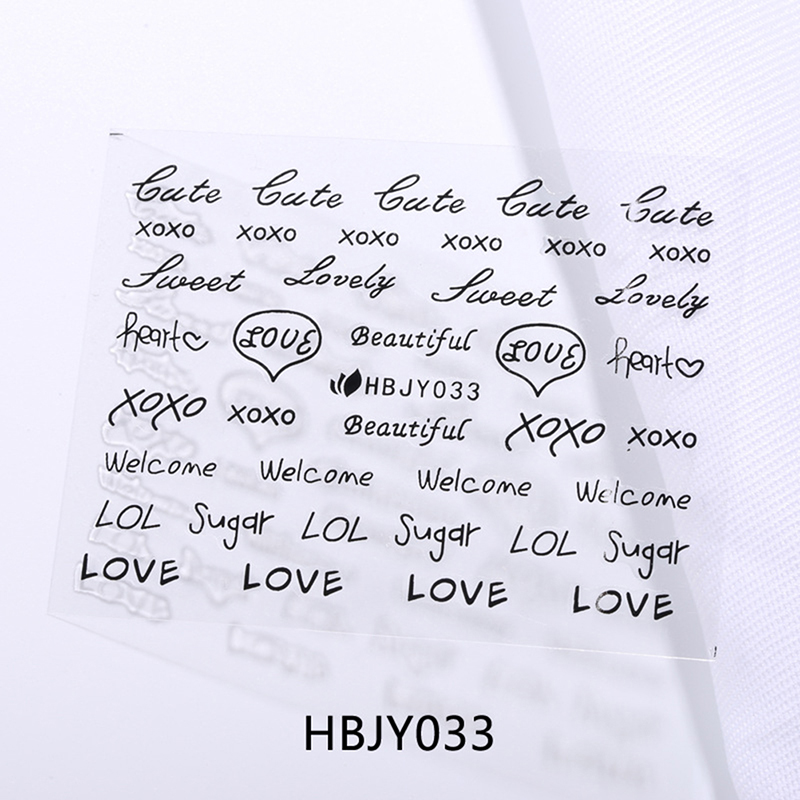 Cute Cute Cute Cute Cute
xoxo xoxo xoxo xoxo xoxo xoxo
Sweet Lovely Sweet Lovely
heart LOVE Beautiful LOVE heart
HBJY033
XOXO xoxo Beautiful XOXO xoxo
Welcome Welcome Welcome Welcome
LOL Sugar LOL Sugar LOL Sugar
LOVE LOVE LOVE LOVE
HBJY033